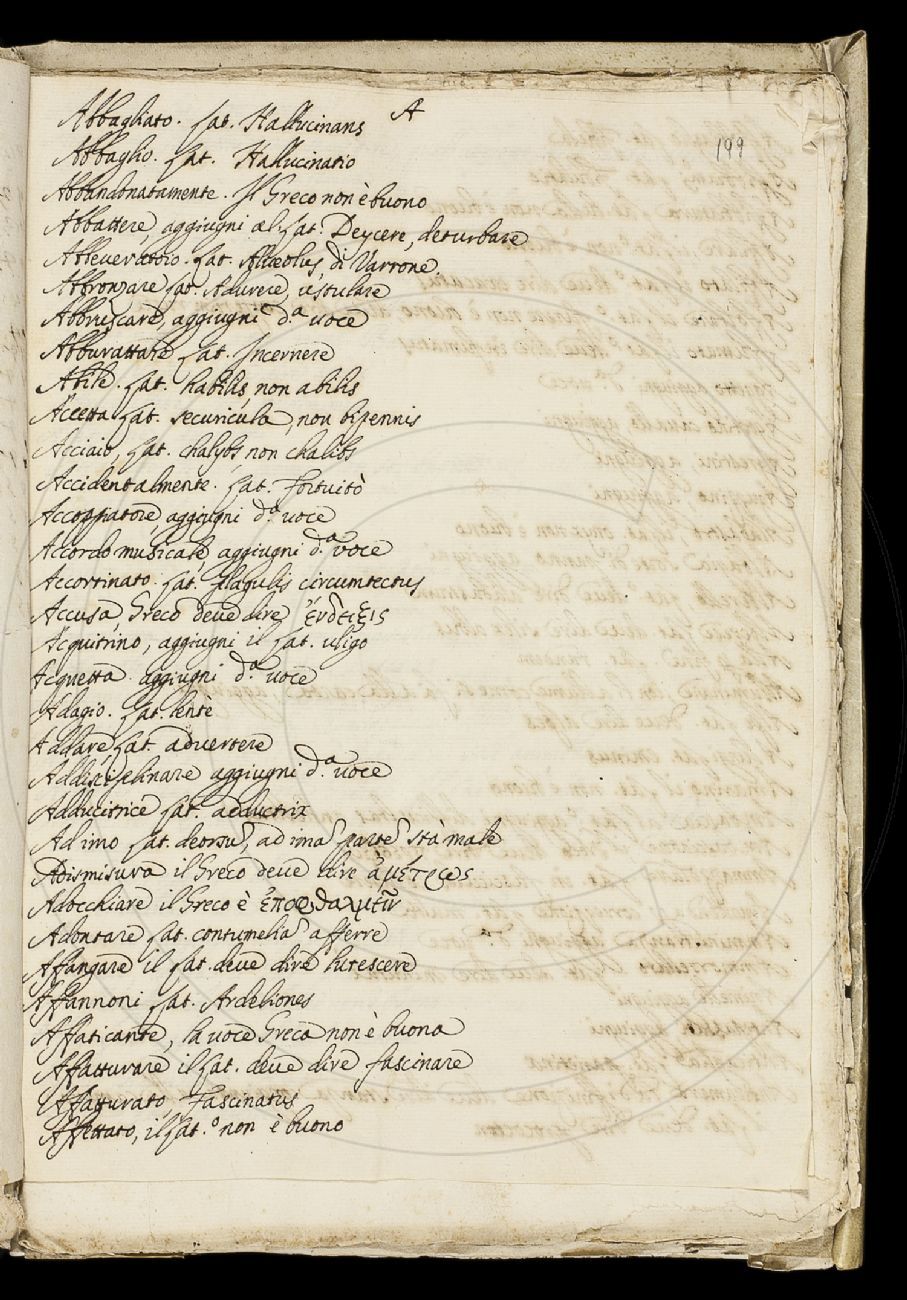 A
199
Abbagliato. Lat. Hallucinans
Abbaglio. Lat. Hallucinatio
Abbandonatamente. Il Greco non è buono
Abbattere, aggiugni al Lat. Deycere, deturbare
Abbeveratoio. Lat. Alveolus, di Varrone.
Abbronzare Lat. Adurere, ustulare
Abbruscare, aggiugni d.ª uoce
Abburattare Lat. Incernere
Abile. Lat. habilis, non abilis
Accetta Lat. securicula, non bipennis
Acciaio, Lat. chalybs, non chalibs
Accidentalmente. Lat. Fortuitò
Accoppatore, aggiugni d.ª uoce
Accordo musicale, aggiugni d.ª voce
Accortinato. Lat. Plagulis circumtectus
Accusa, Greco deue dire ἔνδειξις
Acquitrino, aggiugni il Lat. uligo
Acquetta aggiugni d.ª uoce
Adagio. Lat. lentè
Addare, Lat. aduertere
Addisciplinare aggiugni d.ª uoce
Adducitrice Lat. adductrix
Ad imo Lat. deorsū, ad imā partē stà male
Adismisura il Greco deue dire ἀμέτρως
Adocchiare il Greco è ἐποφθαλμεῖν
Adontare Lat. contumeliā afferre
Affangare il Lat. deue dire lutescere
Affannoni Lat. Ardeliones
Affaticante, la uoce Greca non è buona
Affatturare il Lat. deue dire fascinare
Affatturato, Fascinatus
Affettato, il Lat.º non è buono